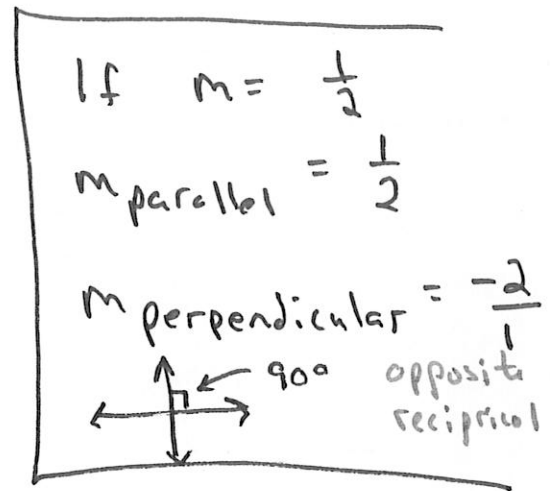 If m = 1/2
m parallel = 1/2
m perpendicular = -2/1
90°
opposite
reciprical